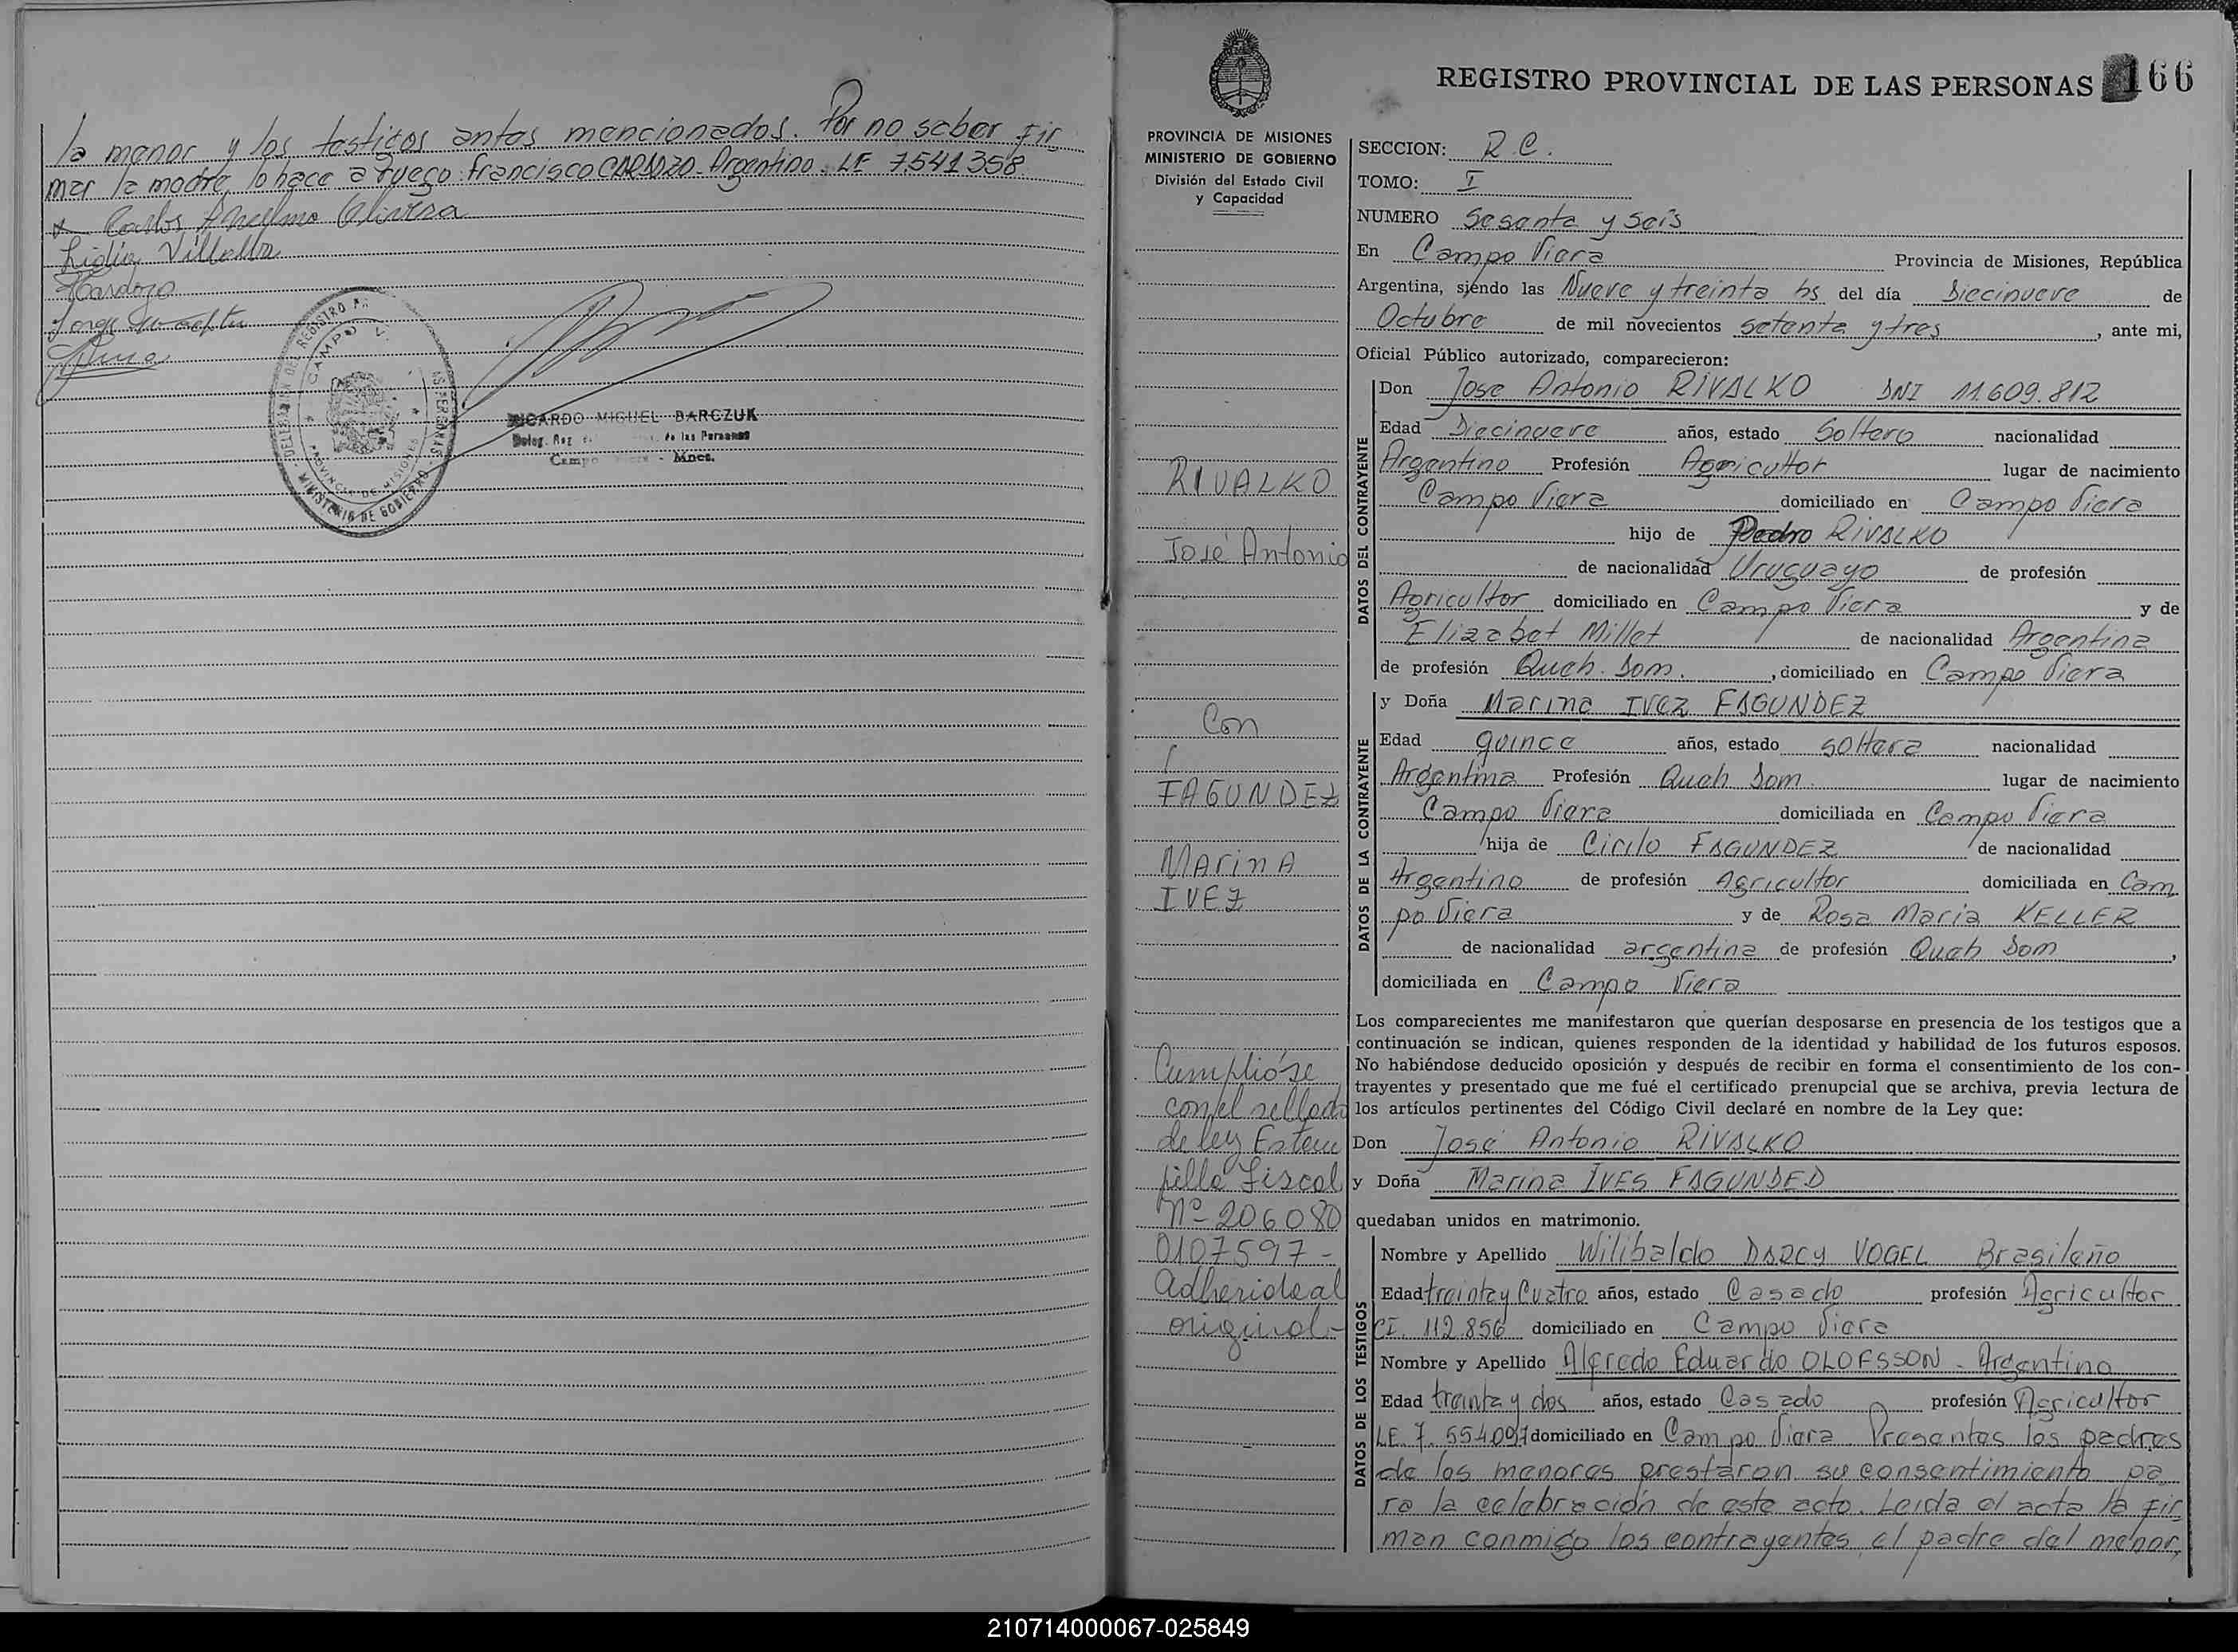 la menor y los testigos antes mencionados. Por no saber fir_
mar la madre, lo hace a ruego Francisco CARDOZO. Argentino. LE 7541358.
Carlos Anselmo Olivera
Lidia Villalba
HCardozo
Jorge
RICARDO MIGUEL BARCZUK
Deleg. Reg. de las Personas
Campo Viera - Mnes.
DELEGACION DEL REGISTRO DE LAS PERSONAS
CAMPO V.
PROVINCIA DE MISIONES
MINISTERIO DE GOBIERNO
REGISTRO PROVINCIAL DE LAS PERSONAS 166
PROVINCIA DE MISIONES
MINISTERIO DE GOBIERNO
División del Estado Civil
y Capacidad
RIVALKO
José Antonio
Con
FAGUNDEZ
MArinA
IVEZ
Cumplióse
con el sellado
de ley Estam
pilla Fiscal
Nº 206080
0107597 -
Adherida al
original -
SECCION: R.C.
TOMO: I
NUMERO Sesenta y seis
En Campo Viera Provincia de Misiones, República
Argentina, siendo las Nueve y treinta hs del día Diecinueve de
Octubre de mil novecientos setenta y tres, ante mi,
Oficial Público autorizado, comparecieron:
DATOS DEL CONTRAYENTE
Don Jose Antonio RIVALKO DNI 11.609.812
Edad Diecinueve años, estado Soltero nacionalidad
Argentino Profesión Agricultor lugar de nacimiento
Campo Viera domiciliado en Campo Viera
hijo de Pedro RIVALKO
de nacionalidad Uruguayo de profesión
Agricultor domiciliado en Campo Viera y de
Elizabet Millet de nacionalidad Argentina
de profesión Queh. Dom., domiciliado en Campo Viera
DATOS DE LA CONTRAYENTE
y Doña Marina IVEZ FAGUNDEZ
Edad quince años, estado soltera nacionalidad
Argentina Profesión Queh Dom. lugar de nacimiento
Campo Viera domiciliada en Campo Viera
hija de Cirilo FAGUNDEZ de nacionalidad
Argentino de profesión Agricultor domiciliada en Cam
po Viera y de Rosa Maria KELLER
de nacionalidad argentina de profesión Queh Dom,
domiciliada en Campo Viera
Los comparecientes me manifestaron que querían desposarse en presencia de los testigos que a
continuación se indican, quienes responden de la identidad y habilidad de los futuros esposos.
No habiéndose deducido oposición y después de recibir en forma el consentimiento de los con-
trayentes y presentado que me fué el certificado prenupcial que se archiva, previa lectura de
los artículos pertinentes del Código Civil declaré en nombre de la Ley que:
Don José Antonio RIVALKO
y Doña Marina IVES FAGUNDED
quedaban unidos en matrimonio.
DATOS DE LOS TESTIGOS
Nombre y Apellido Wilibaldo DARCY VOGEL Brasileño
Edad treinta y Cuatro años, estado Casado profesión Agricultor
CI. 112.856 domiciliado en Campo Viera
Nombre y Apellido Alfredo Eduardo OLOFSSON - Argentino
Edad treinta y dos años, estado Casado profesión Agricultor
LE. 7. 554.097 domiciliado en Campo Viera Presentes los padres
de los menores prestaron su consentimiento pa
ra la celebración de este acto. Leida el acta la fir
man conmigo los contrayentes, el padre del menor,
210714000067-025849